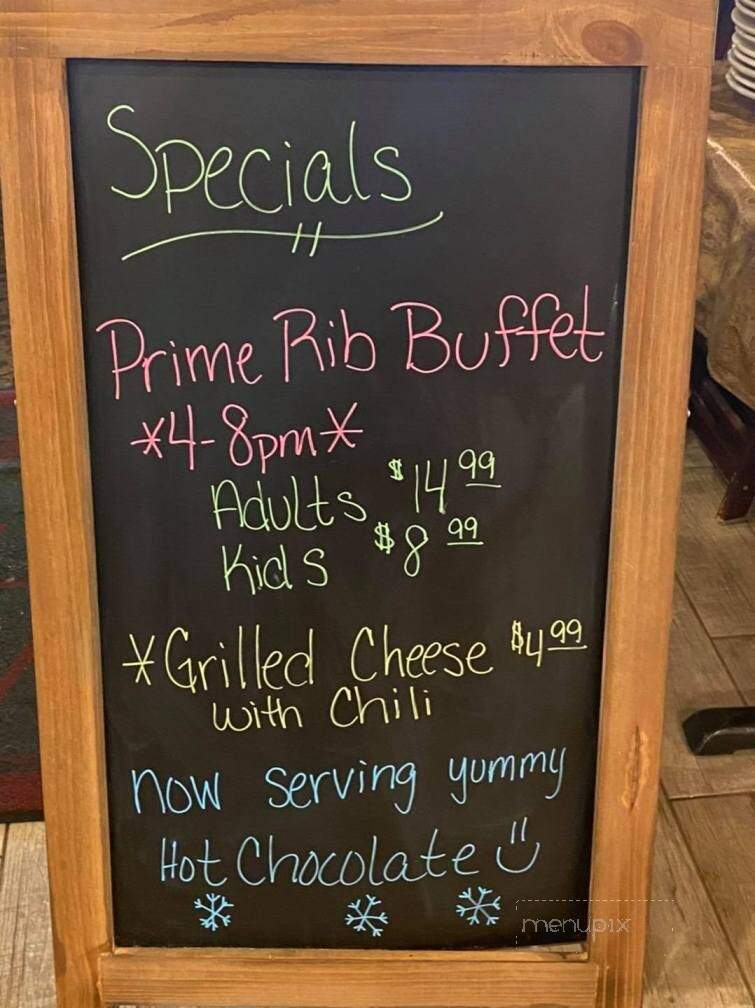 Specials
Prime Rib Buffet
*4-8pm*
Adults $14.99
Kids $8.99
*Grilled Cheese $4.99
with Chili
now serving yummy
Hot Chocolate
menupix